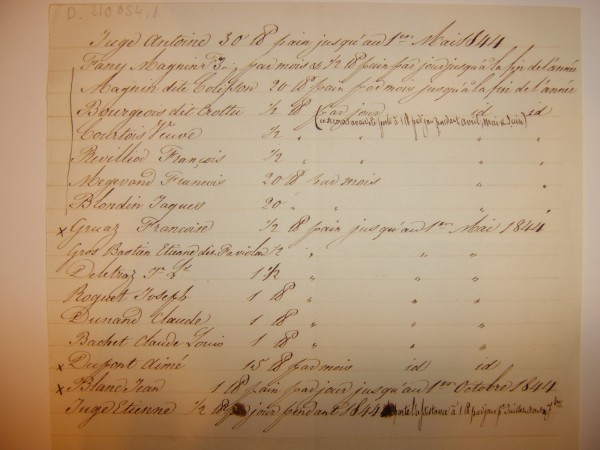 D. 210 854.1
Juge Antoine 30 ℔ pain jusqu'au 1er Mai 1844
Fany Magnin par mois & 1/2 ℔ pain par jour jusqu'à la fin de l'année
Magnin dite Colipton 20 ℔ pain par mois jusqu'à la fin de l'année
Bourgeois dit Crottu 1/2 ℔ par jour id id
Courtois Veuve 1/2 " " "
(ce repas avait été porté à 1 ℔ par jour pendant avril, Mai & Juin)
Revillior François 1/2 " " "
Megevand Francois 20 ℔ par mois " "
Blondin Jaques 20 " " " "
x Gruaz Francoin 1/2 ℔ pain jusqu'au 1er Mai 1844
Gros Bastian Etiene dit Paviolan 1/2 " " "
Deletraz 1 1/2 " " "
Roguet Joseph 1 ℔ " " "
Dunand Claude 1 ℔ " " "
Bachet Claude Louis 1 ℔ " " "
x Dupont Aimé 15 ℔ par mois id id
x Blanc Jean 1 ℔ pain par jour jusqu'au 1er Octobre 1844
Juge Etienne 1/2 ℔ par jour pendant 1844 porté à 1 ℔ par jour